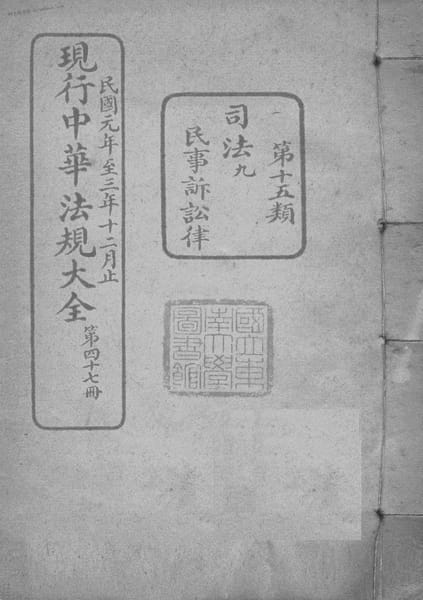 第十五類
司法九
民事訴訟律
民國元年至三年十二月止
現行中華法規大全
第四十七冊
國立東
南大學
圖書館